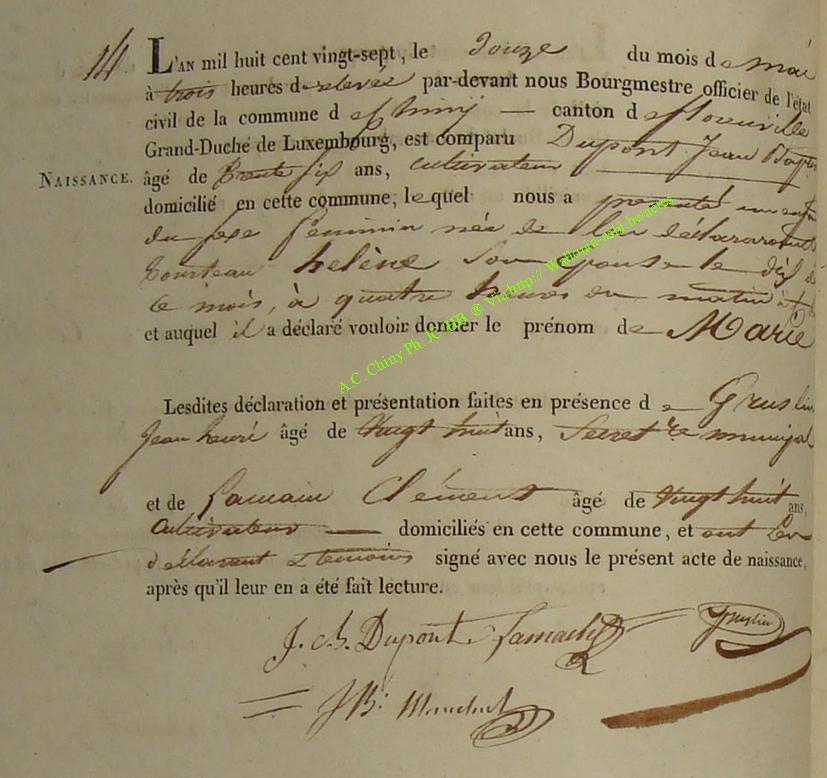 14 L'AN mil huit cent vingt-sept, le douze du mois de mai
à trois heures de relevée par-devant nous Bourgmestre officier de l'état
civil de la commune de Chiny — canton de florenville
Grand-Duché de Luxembourg, est comparu Dupont Jean
NAISSANCE. âgé de trente six ans, cultivateur
domicilié en cette commune, lequel nous a presenté un enfant
du sexe feminin née de lui déclarant et de
helène son epouse le dix de
ce mois, à quatre heures du matin
et auquel il a déclaré vouloir donner le prénom de Marie
Lesdites déclaration et présentation faites en présence de Gruslin
Jean henri âgé de vingt huit ans, Secret.re municipal
et de Lamain Clément âgé de vingt huit ans,
Cultivateur — domiciliés en cette commune, et ont les
déclarant & temoins signé avec nous le présent acte de naissance,
après qu'il leur en a été fait lecture.
J. b. Dupont Gruslin
A.C. Chiny Ph. JCHHB ® Via http://wallonia-asbl.be/actes